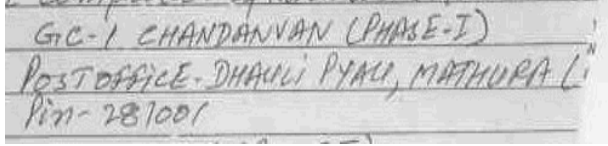 GC-1 CHANDANVAN (PHASE-I)
POSTOFFICE-DHAULI PYAU, MATHURA (
Pin-281001